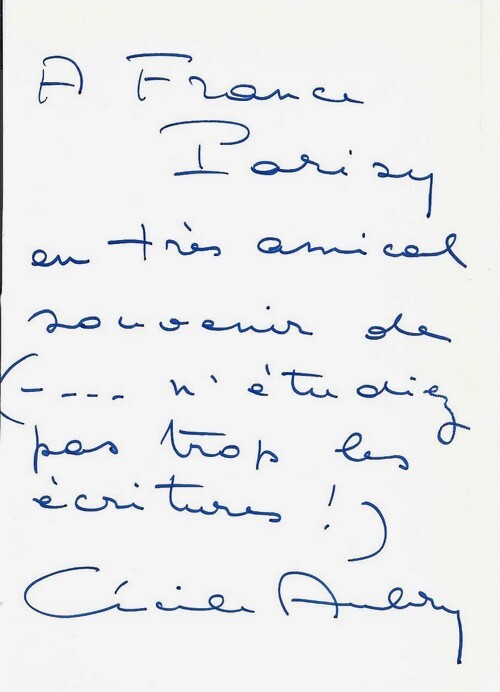 A France
Parizy
en très amical
souvenir de
(---- n'étudiez
pas trop les
écritures !)
Cécile Aubry